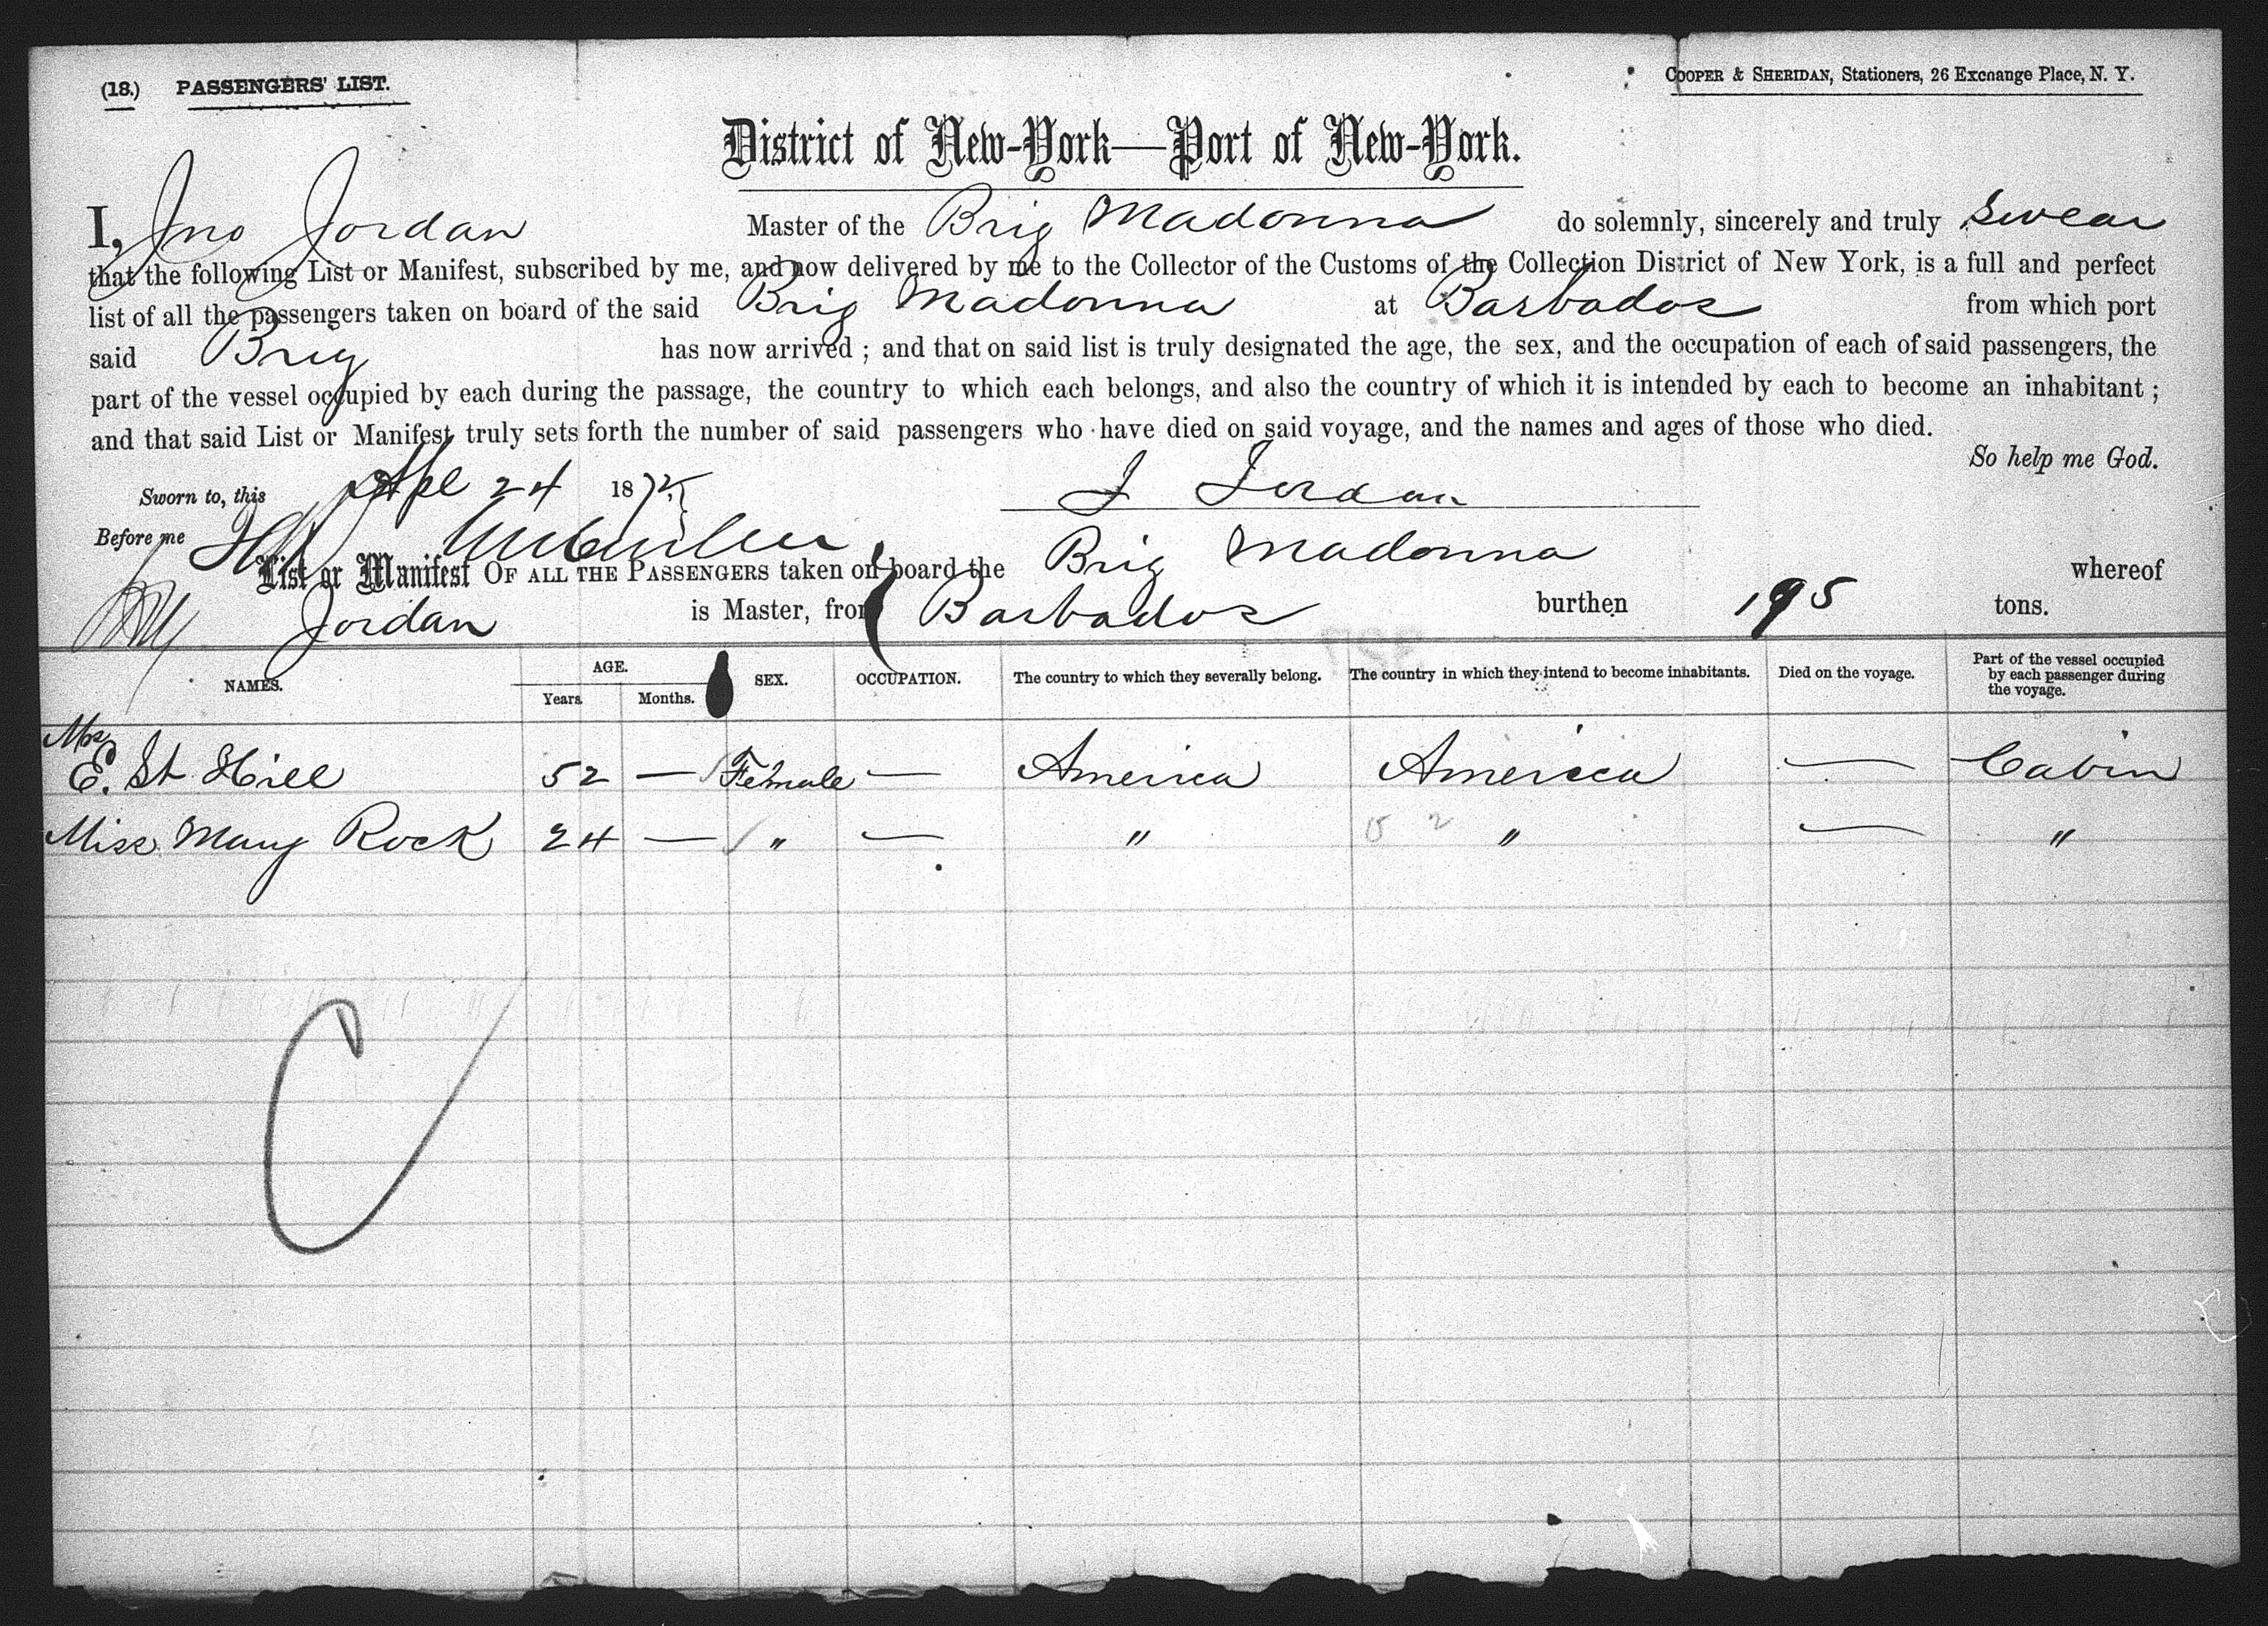 (18.) PASSENGERS' LIST.
COOPER & SHERIDAN, Stationers, 26 Exchange Place, N. Y.
District of New-York—Port of New-York.
I, Jno Jordan Master of the Brig Madonna do solemnly, sincerely and truly swear
that the following List or Manifest, subscribed by me, and now delivered by me to the Collector of the Customs of the Collection District of New York, is a full and perfect
list of all the passengers taken on board of the said Brig Madonna at Barbados from which port
said Brig has now arrived ; and that on said list is truly designated the age, the sex, and the occupation of each of said passengers, the
part of the vessel occupied by each during the passage, the country to which each belongs, and also the country of which it is intended by each to become an inhabitant ;
and that said List or Manifest truly sets forth the number of said passengers who have died on said voyage, and the names and ages of those who died.
So help me God.
Sworn to, this Apl 24 1875 J Jordan
Before me
List or Manifest OF ALL THE PASSENGERS taken on board the Brig Madonna whereof
Jordan is Master, from Barbados burthen 195 tons.
NAMES. AGE. Years Months. SEX. OCCUPATION. The country to which they severally belong. The country in which they intend to become inhabitants. Died on the voyage. Part of the vessel occupied by each passenger during the voyage.
Mrs
E. St Hill 52 — Female — America America — Cabin
Miss Mary Rock 24 — " — " " — "
C